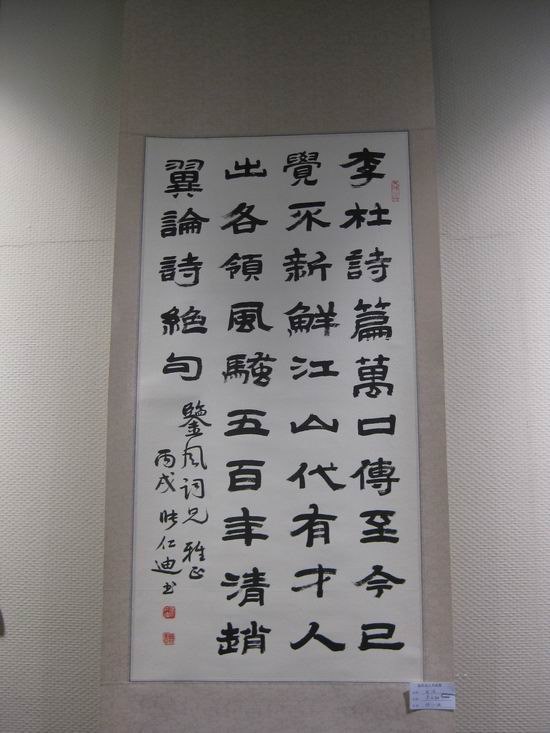 李杜詩篇萬口傳至今已
覺不新鮮江山代有才人
出各領風騷五百年清趙
翼論詩絕句
鑒風詞兄雅正
丙戌張仁迪書